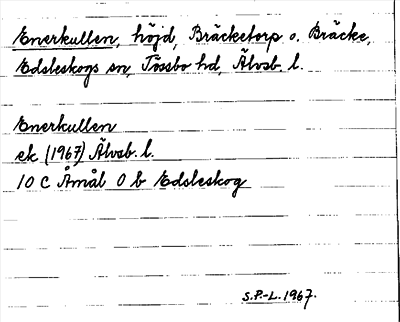 Enerkullen, höjd, Bräcketorp o. Bräcke,
Edsleskogs sn, Tössbo hd, Älvsb. l.
Enerkullen
ek (1967) Älvsb. l.
10 C Åmål 0 b Edsleskog
S.P.-L. 1967.